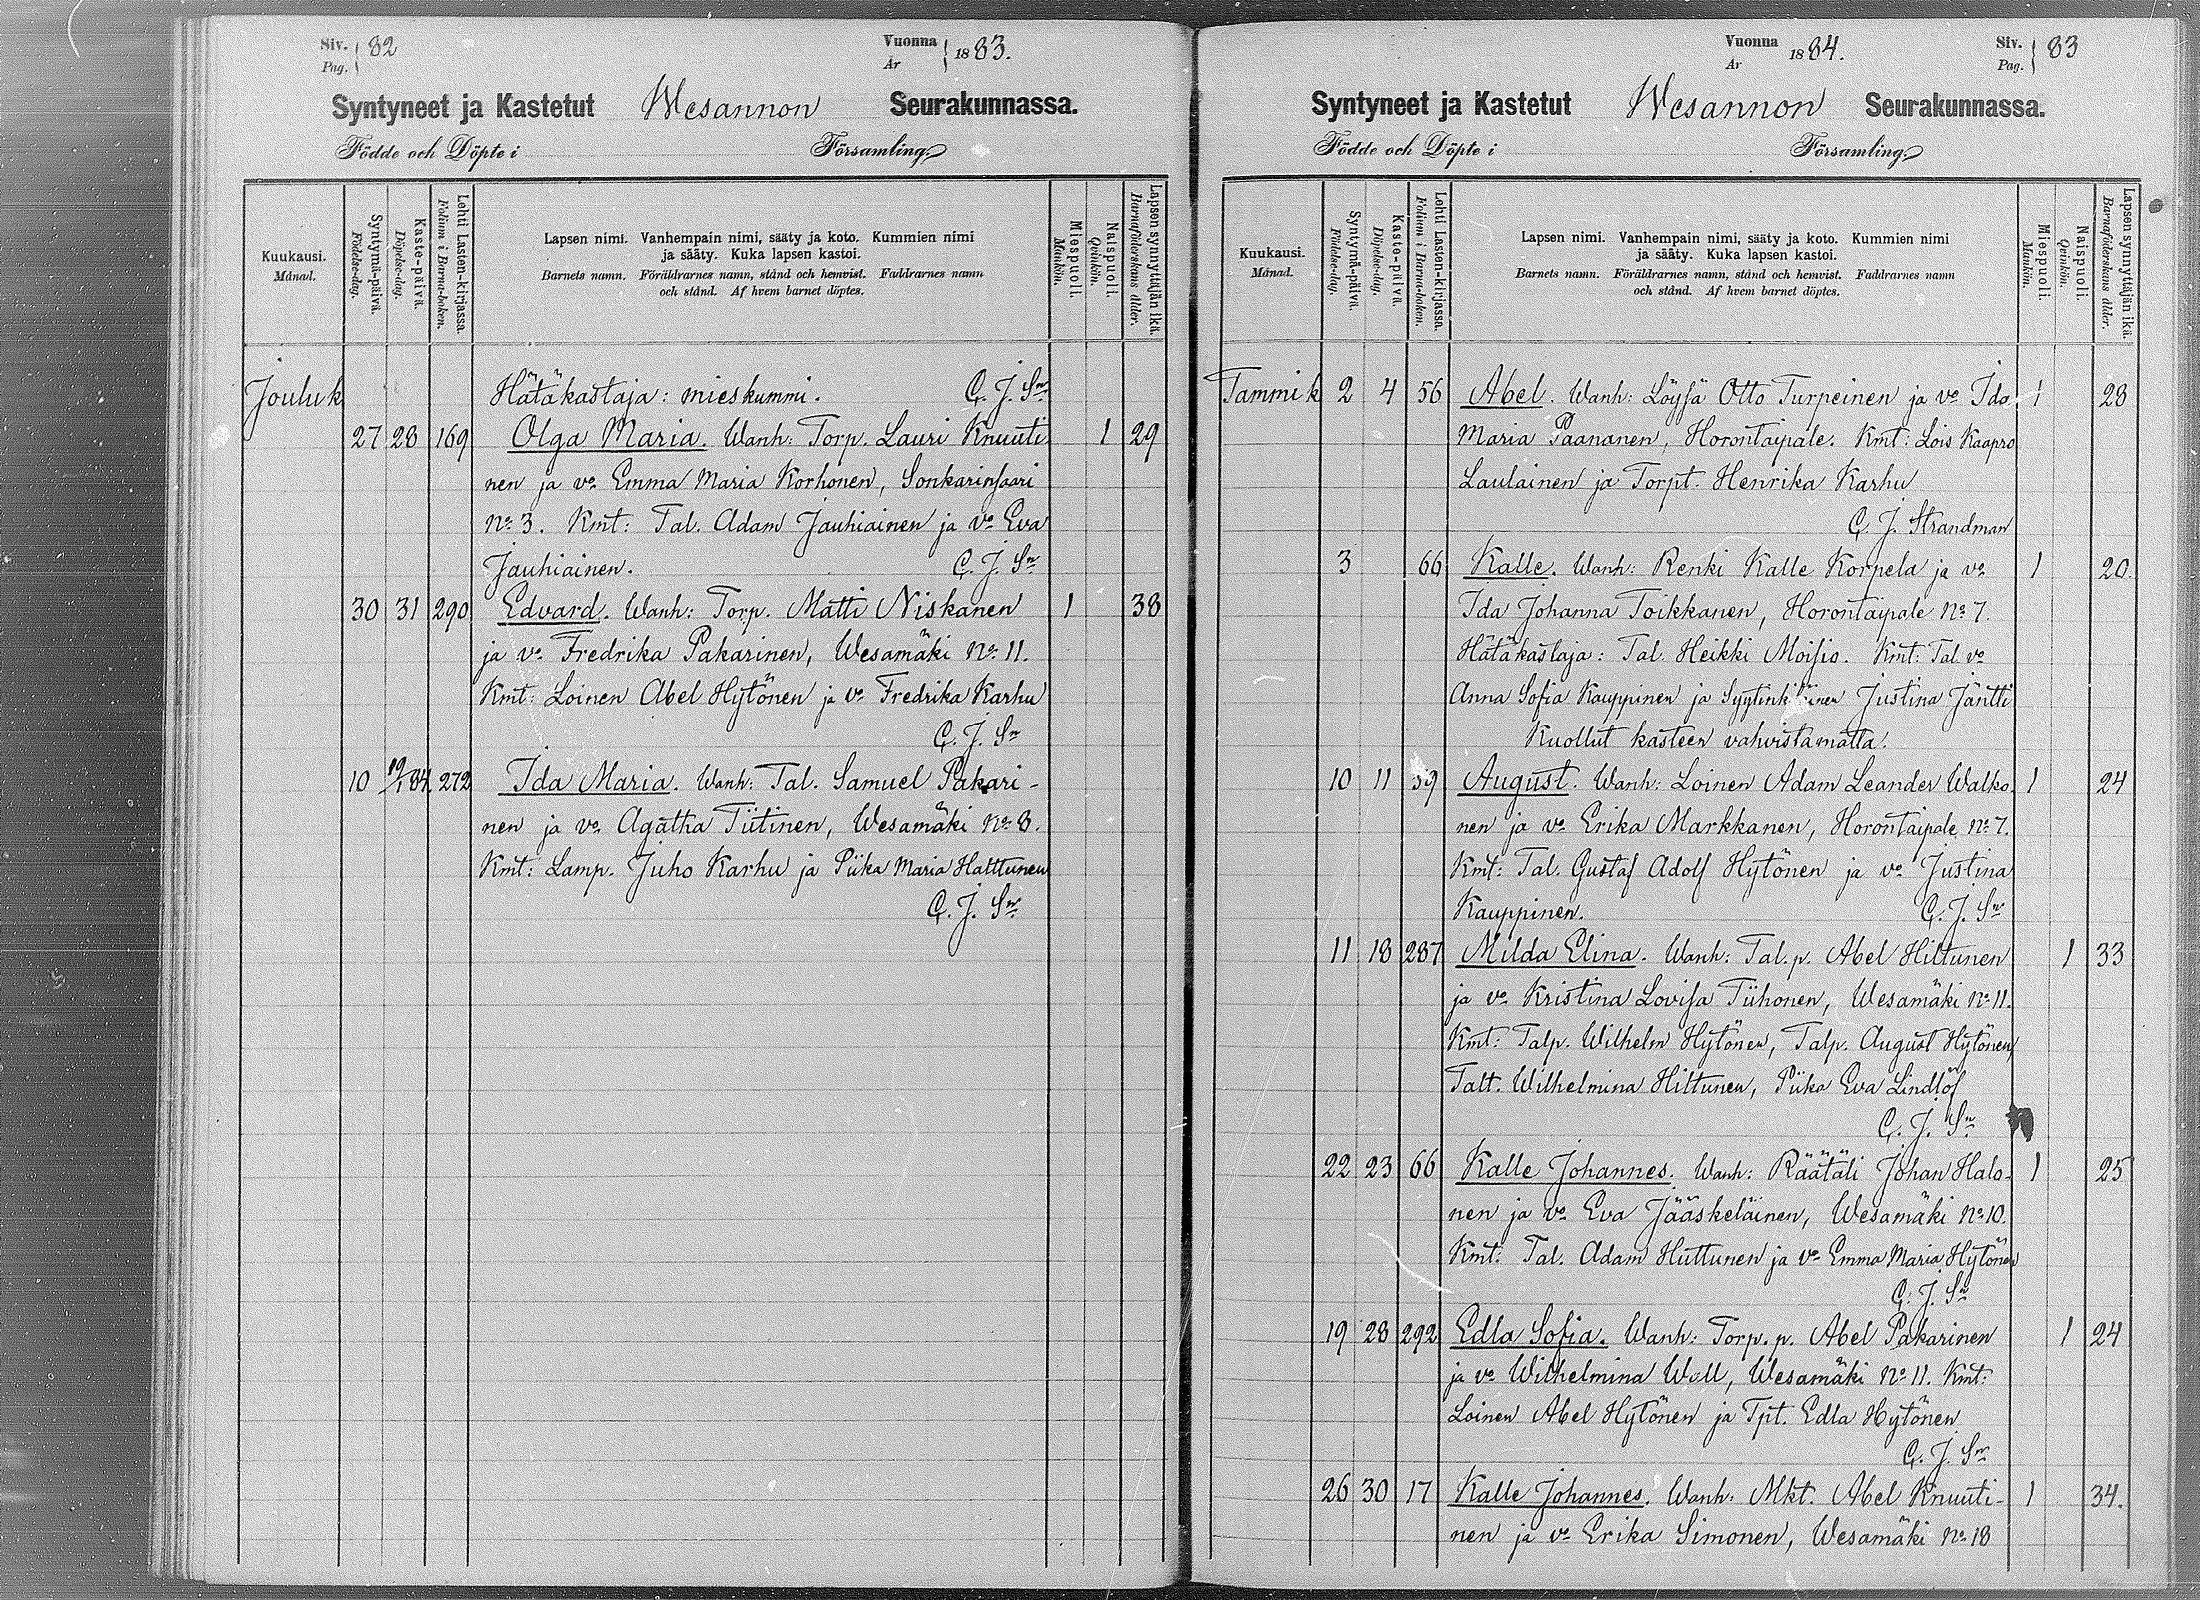 Siv. 82
Pag.
Vuonna 1883.
Ar
Syntyneet ja Kastetut Wesannon Seurakunnassa.
Födde och Döpte i Församling.
Kuukausi.
Månad.
Syntymä-päivä.
Födelse-dag.
Kaste-päivä.
Döpelse-dag.
Lehti Lasten-kirjassa.
Folium i Barna-boken.
Lapsen nimi. Vanhempain nimi, sääty ja koto. Kummien nimi
ja sääty. Kuka lapsen kastoi.
Barnets namn. Föräldrarnes namn, stånd och hemvist. Faddrarnes namn
och stånd. Af hvem barnet döptes.
Miespuoli.
Mankön.
Naispuoli.
Qvinkön.
Lapsen synnyttäjän ikä.
Barnaföderskans ålder.
Jouluk Hätäkastaja: mieskummi. C. J. Sn
27 28 169 Olga Maria. Wanh: Torp. Lauri Knuuti 1 29
nen ja vo Emma Maria Korhonen, Sonkarinsaari
No 3. Kmt: Tal. Adam Jauhiainen ja vo Eva
Jauhiainen. C. J. Sn
30 31 290 Edvard. Wanh: Torp. Matti Niskanen 1 38
ja vo Fredrika Pakarinen, Wesamäki No 11.
Kmt: Loinen Abel Hytönen ja vo Fredrika Karhu
C. J. Sn
10 19/1 84 272 Ida Maria. Wanh: Tal. Samuel Pakari-
nen ja vo Agatha Tiitinen, Wesamäki No 8.
Kmt: Lamp. Juho Karhu ja Piika Maria Halttunen
C. J. Sn
Vuonna 1884.
Ar
Siv. 83
Pag.
Syntyneet ja Kastetut Wesannon Seurakunnassa.
Födde och Döpte i Församling.
Kuukausi.
Månad.
Syntymä-päivä.
Födelse-dag.
Kaste-päivä.
Döpelse-dag.
Lehti Lasten-kirjassa.
Folium i Barna-boken.
Lapsen nimi. Vanhempain nimi, sääty ja koto. Kummien nimi
ja sääty. Kuka lapsen kastoi.
Barnets namn. Föräldrarnes namn, stånd och hemvist. Faddrarnes namn
och stånd. Af hvem barnet döptes.
Miespuoli.
Mankön.
Naispuoli.
Qvinkön.
Lapsen synnyttäjän ikä.
Barnaföderskans ålder.
Tammik 2 4 56 Abel. Wanh: Löysä Otto Turpeinen ja vo Ida 1 28
Maria Paananen, Horontaipale. Kmt: Lois Kaapro
Laulainen ja Torpt. Henrika Karhu
C. J. Strandman
3 66 Kalle. Wanh: Renki Kalle Korpela ja vo 1 20.
Ida Johanna Toikkanen, Horontaipale No 7.
Hätäkastaja: Tal. Heikki Moisio. Kmt: Tal. vo
Anna Sofia Kauppinen ja Syytinkiläinen Justina Jäntti
Kuollut kasteen vahvistamatta.
10 11 39 August. Wanh: Loinen Adam Leander Walko 1 24
nen ja vo Erika Markkanen, Horontaipale No 7.
Kmt: Tal. Gustaf Adolf Hytönen ja vo Justina
Kauppinen. C. J. Sn
11 18 287 Milda Elina. Wanh: Tal. p. Abel Hiltunen 1 33
ja vo Kristina Lovisa Tiihonen, Wesamäki No 11.
Kmt: Talp. Wilhelm Hytönen, Talp. August Hytönen,
Talt. Wilhelmina Hiltunen, Piika Eva Lindlöf
C. J. Sn
22 23 66 Kalle Johannes. Wanh: Räätäli Johan Halo- 1 25
nen ja vo Eva Jääskeläinen, Wesamäki No 10.
Kmt: Tal. Adam Huttunen ja vo Emma Maria Hytönen
C. J. Sn
19 28 292 Edla Sofia. Wanh: Torp. p. Abel Pakarinen 1 24
ja vo Wilhelmina Wall, Wesamäki No 11. Kmt:
Loinen Abel Hytönen ja Tpt. Edla Hytönen
C. J. Sn
26 30 17 Kalle Johannes. Wanh: Mkt. Abel Knuuti- 1 34.
nen ja vo Erika Simonen, Wesamäki No 18